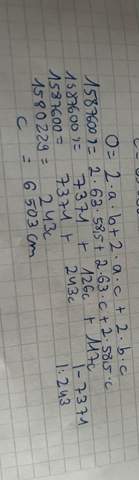 O = 2·a·b + 2·a·c + 2·b·c
1587600 = 2·63·58,5 + 2·63·c + 2·58,5·c
1587600 = 7371 + 126c + 117c
1587600 = 7371 + 243c |-7371
1580229 = 243c |:243
c = 6503 cm